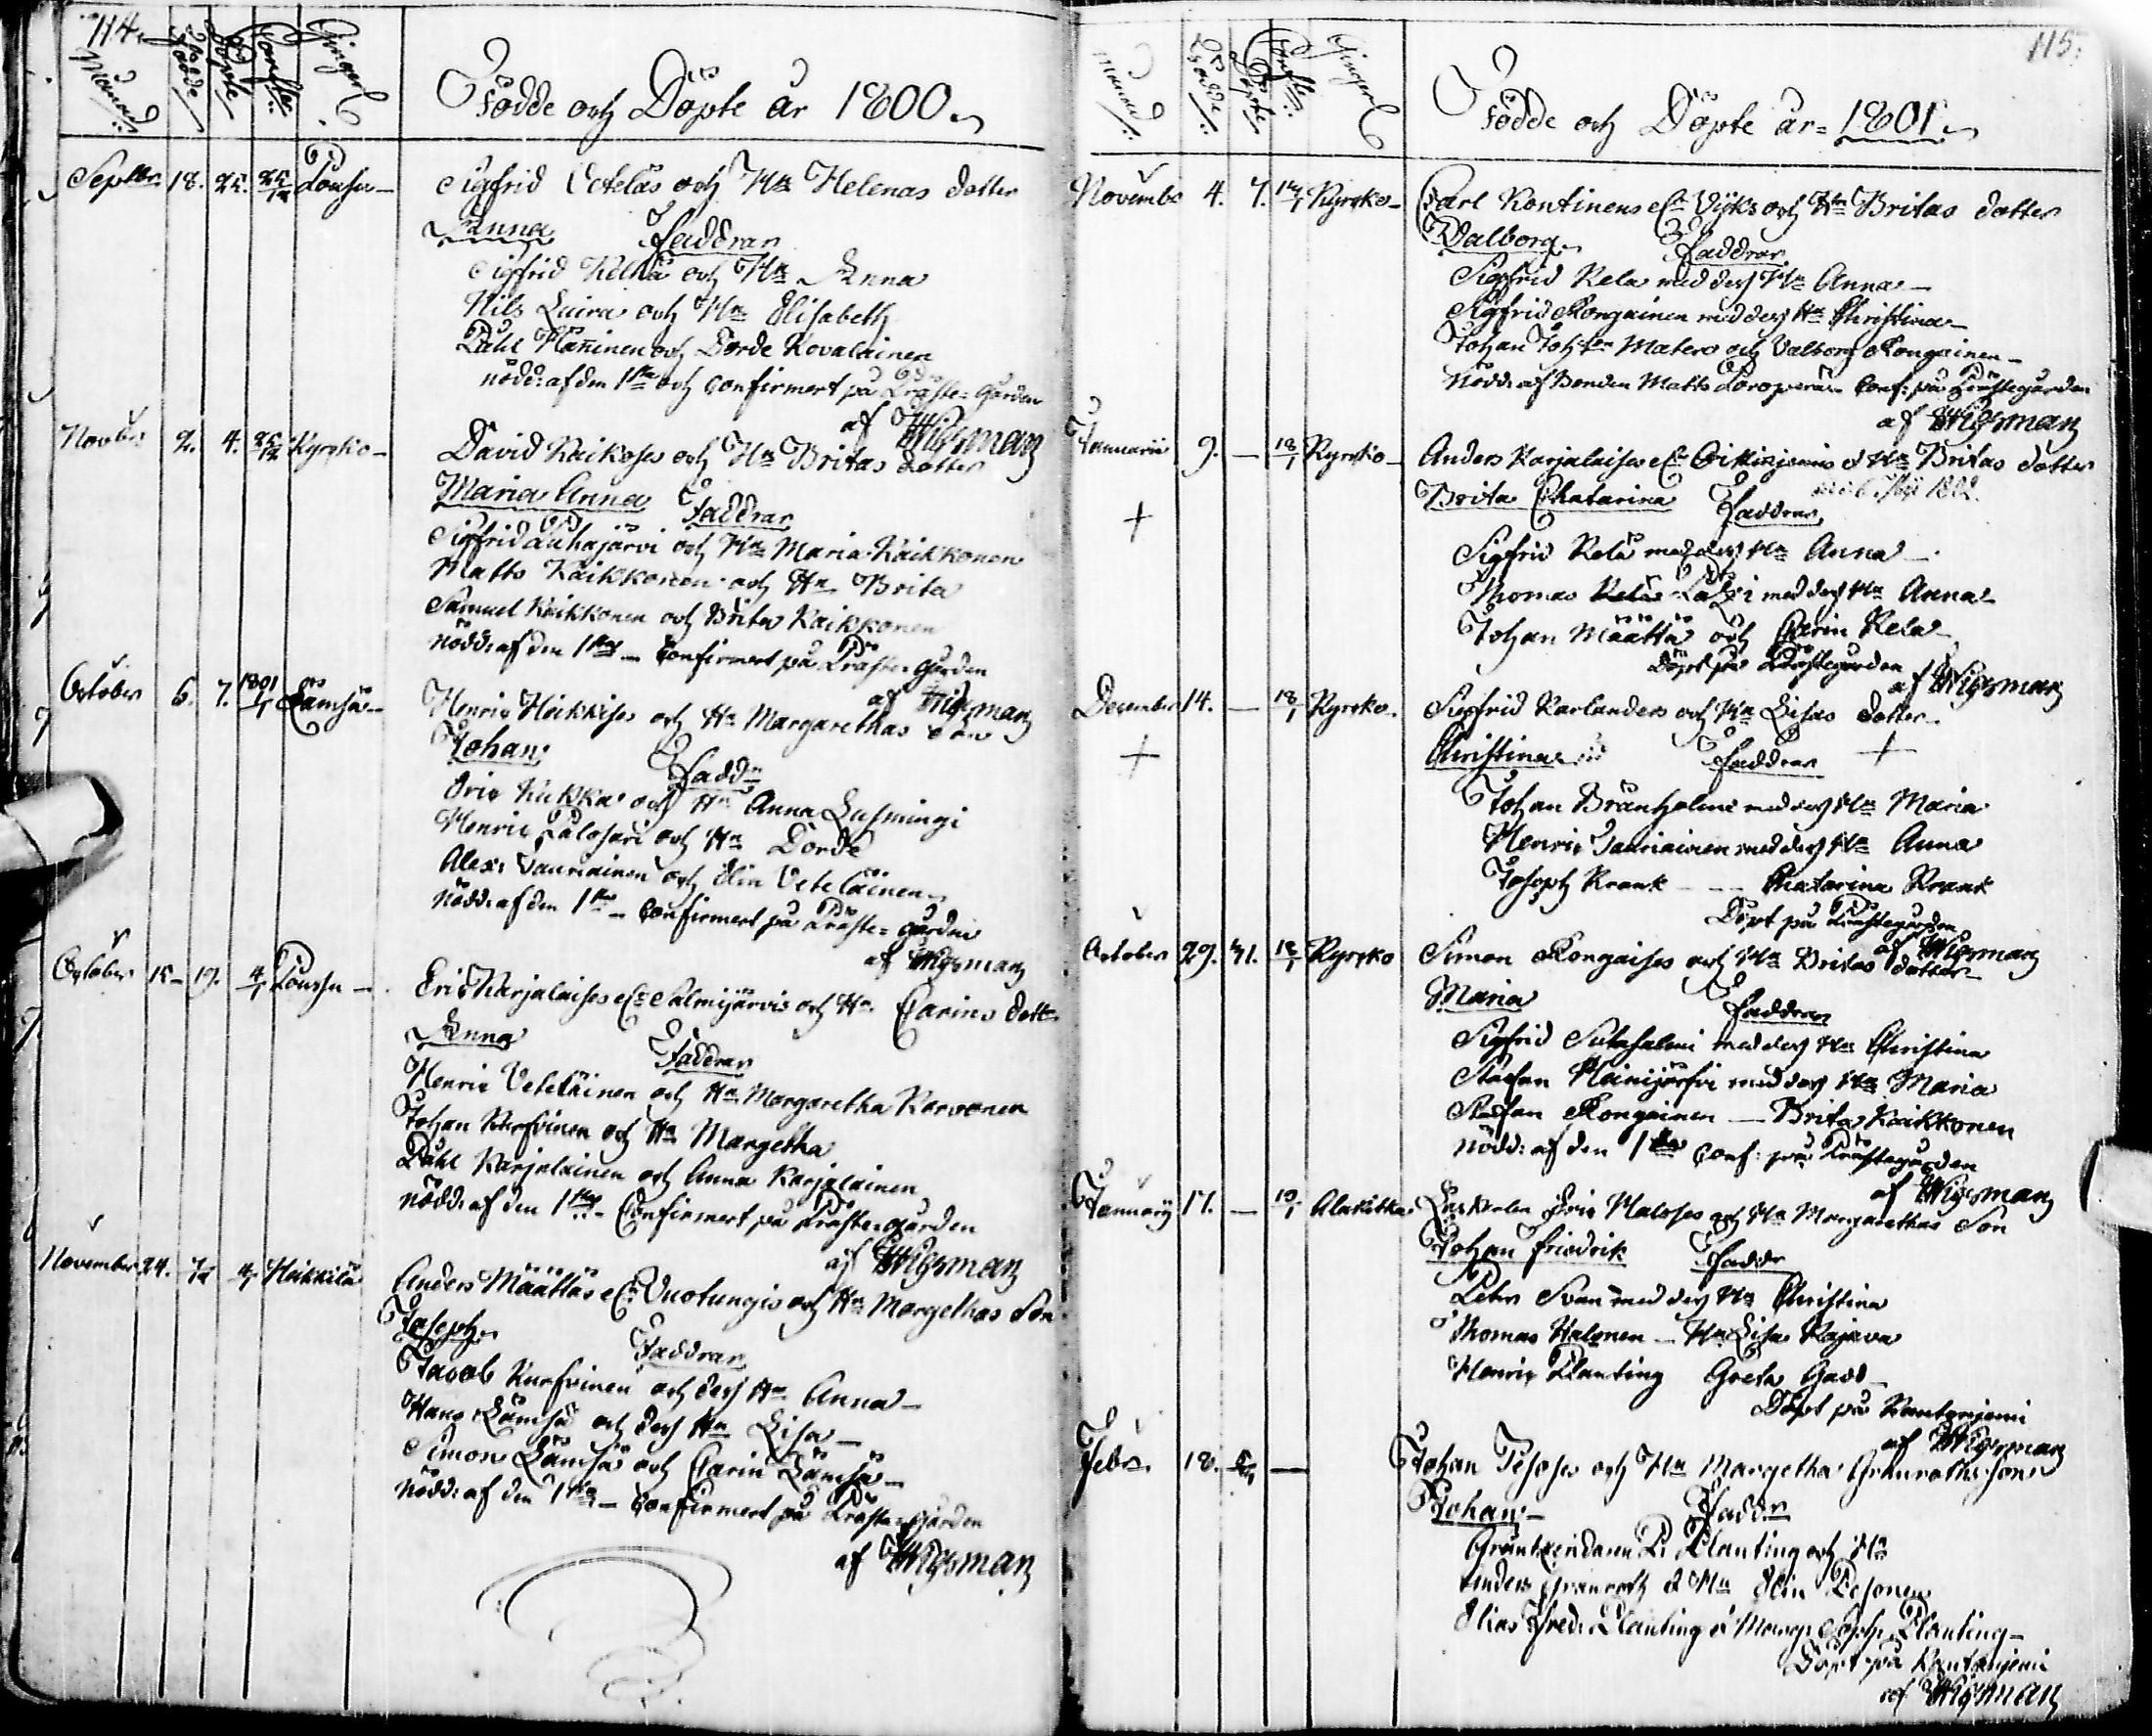 114.
Månad Födde Döpte Confirm: Ginger
Födde och Döpte år 1800.
Septbr 18. 25. 25/12 Lousu
Sigfrid Veteläs och H:u Helenas dotter
Anna Faddrar
Sigfrid Kellä och H:u Anna
Nils Luira och H:u Elisabeth
Påhl Hänninen och Dorde Kovalainen
nödd: af den 1:sta och Confirmert på Präste=Gården
af Wigsman
Novbr 2. 4. 25/12 Kyrcko
David Kaikoses och H:u Britas dotter
Maria Anna Faddrar
Sigfrid Auhajärvi och H:u Maria Kaikkonen
Matts Kaikkonen och H:u Brita
Samuel Kaikkonen och Brita Kaikkonen
nödd: af den 1:sta Confirmert på Präste=Gården
af Wigsman
October 6. 7. 1801 1/1 Lämsä
Henric Heikkises och H:u Margarethas Son
Johan Fadd:r
Eric Kukka och H:u Anna Lusmingi
Henric Palosari och H:u Dorde
Alex: Tauriainen och Elin Veteläinen
nödd: af den 1:sta Confirmert på Präste=gården
af Wigsman
October 15 19. 4/1 Lousu
Eric Karjalaises fr: Salmijärvis och H:u Carins dott:
Anna Faddrar
Henric Veteläinen och H:u Margaretha Karvonen
Johan Kurfvinen och H:u Margetha
Påhl Karjalainen och Anna Karjalainen
nödd: af den 1:sta Confirmert på Präste=gården
af Wigsman
November 24. 7/12 4/1 Heikkilä
Anders Määttäs fr: Vuotungis och H:u Margethas Son
Joseph Faddrar
Jacob Kurfvinen och dess H:u Anna
Hans Lämsä och dess H:u Lisa
Simon Lämsä och Carin Lämsä
nödd: af den 1:sta Confirmert på Präste=gården
af Wigsman
115.
Månad Födde Döpte Confir: Ginger
Födde och Döpte år 1801.
Novembr 4. 7. Kyrcko
Carl Rontinens och H:u Britas dotter
Valborg Faddrar
Sigfrid Kela med dess H:u Anna
Sigfrid Rongainen med dess H:u Christina
Johan Johsson Matero och Valborg Rongainen
Nödd: af Bonden Matts Conf: på Prästegården
af Wigsman
Januarii 9. — 18/1 Kyrcko
Anders Karjalaises fr: Oikinjemis & H:u Britas dotter
Brita Chatarina Faddrar
Sigfrid Kela med dess H:u Anna
Thomas med dess H:u Anna
Johan Määttä och Carin Kela
Döpt på Prästegården
af Wigsman
December 14. — 18/1 Kyrcko.
Sigfrid Karlanders och H:u Lisas dotter
Christina Faddrar
Johan Brånholm med dess H:u Maria
Henric Tauriainen med dess H:u Anna
Joseph Krank — Chatarina Krank
Döpt på Prästegården
af Wigsman
October 29. 31. 18/1 Kyrcko
Simon Rongaises och H:u Britas dotter
Maria Faddrar
Sigfrid Sutasalmi med dess H:u Christina
Staffan Heinijärfvi med dess H:u Maria
Staffan Rongainen — Brita Kaikkonen
nödd: af den 1:sta Conf: på Prästegården
af Wigsman
Januarij 17. — 19/1 Alakitka
Eric Haloses och H:u Margarethas Son
Johan Friedrik Faddr
Petter Svan med dess H:u Christina
Thomas Halonen — H:u Lisa Kajava
Henric Planting Greta Gadd
Döpt på Rantanjemi
af Wigsman
Febr. 18. —
Johan Pesoses och H:u Margetha Granroths Son
Johan Fadd:r
P. Planting och H:u
Anders Granroth & H:u Elin Pesonen
Elias Fred: Planting & Marg: Soph: Planting
Döpt på Rantanjemi
af Wigsman